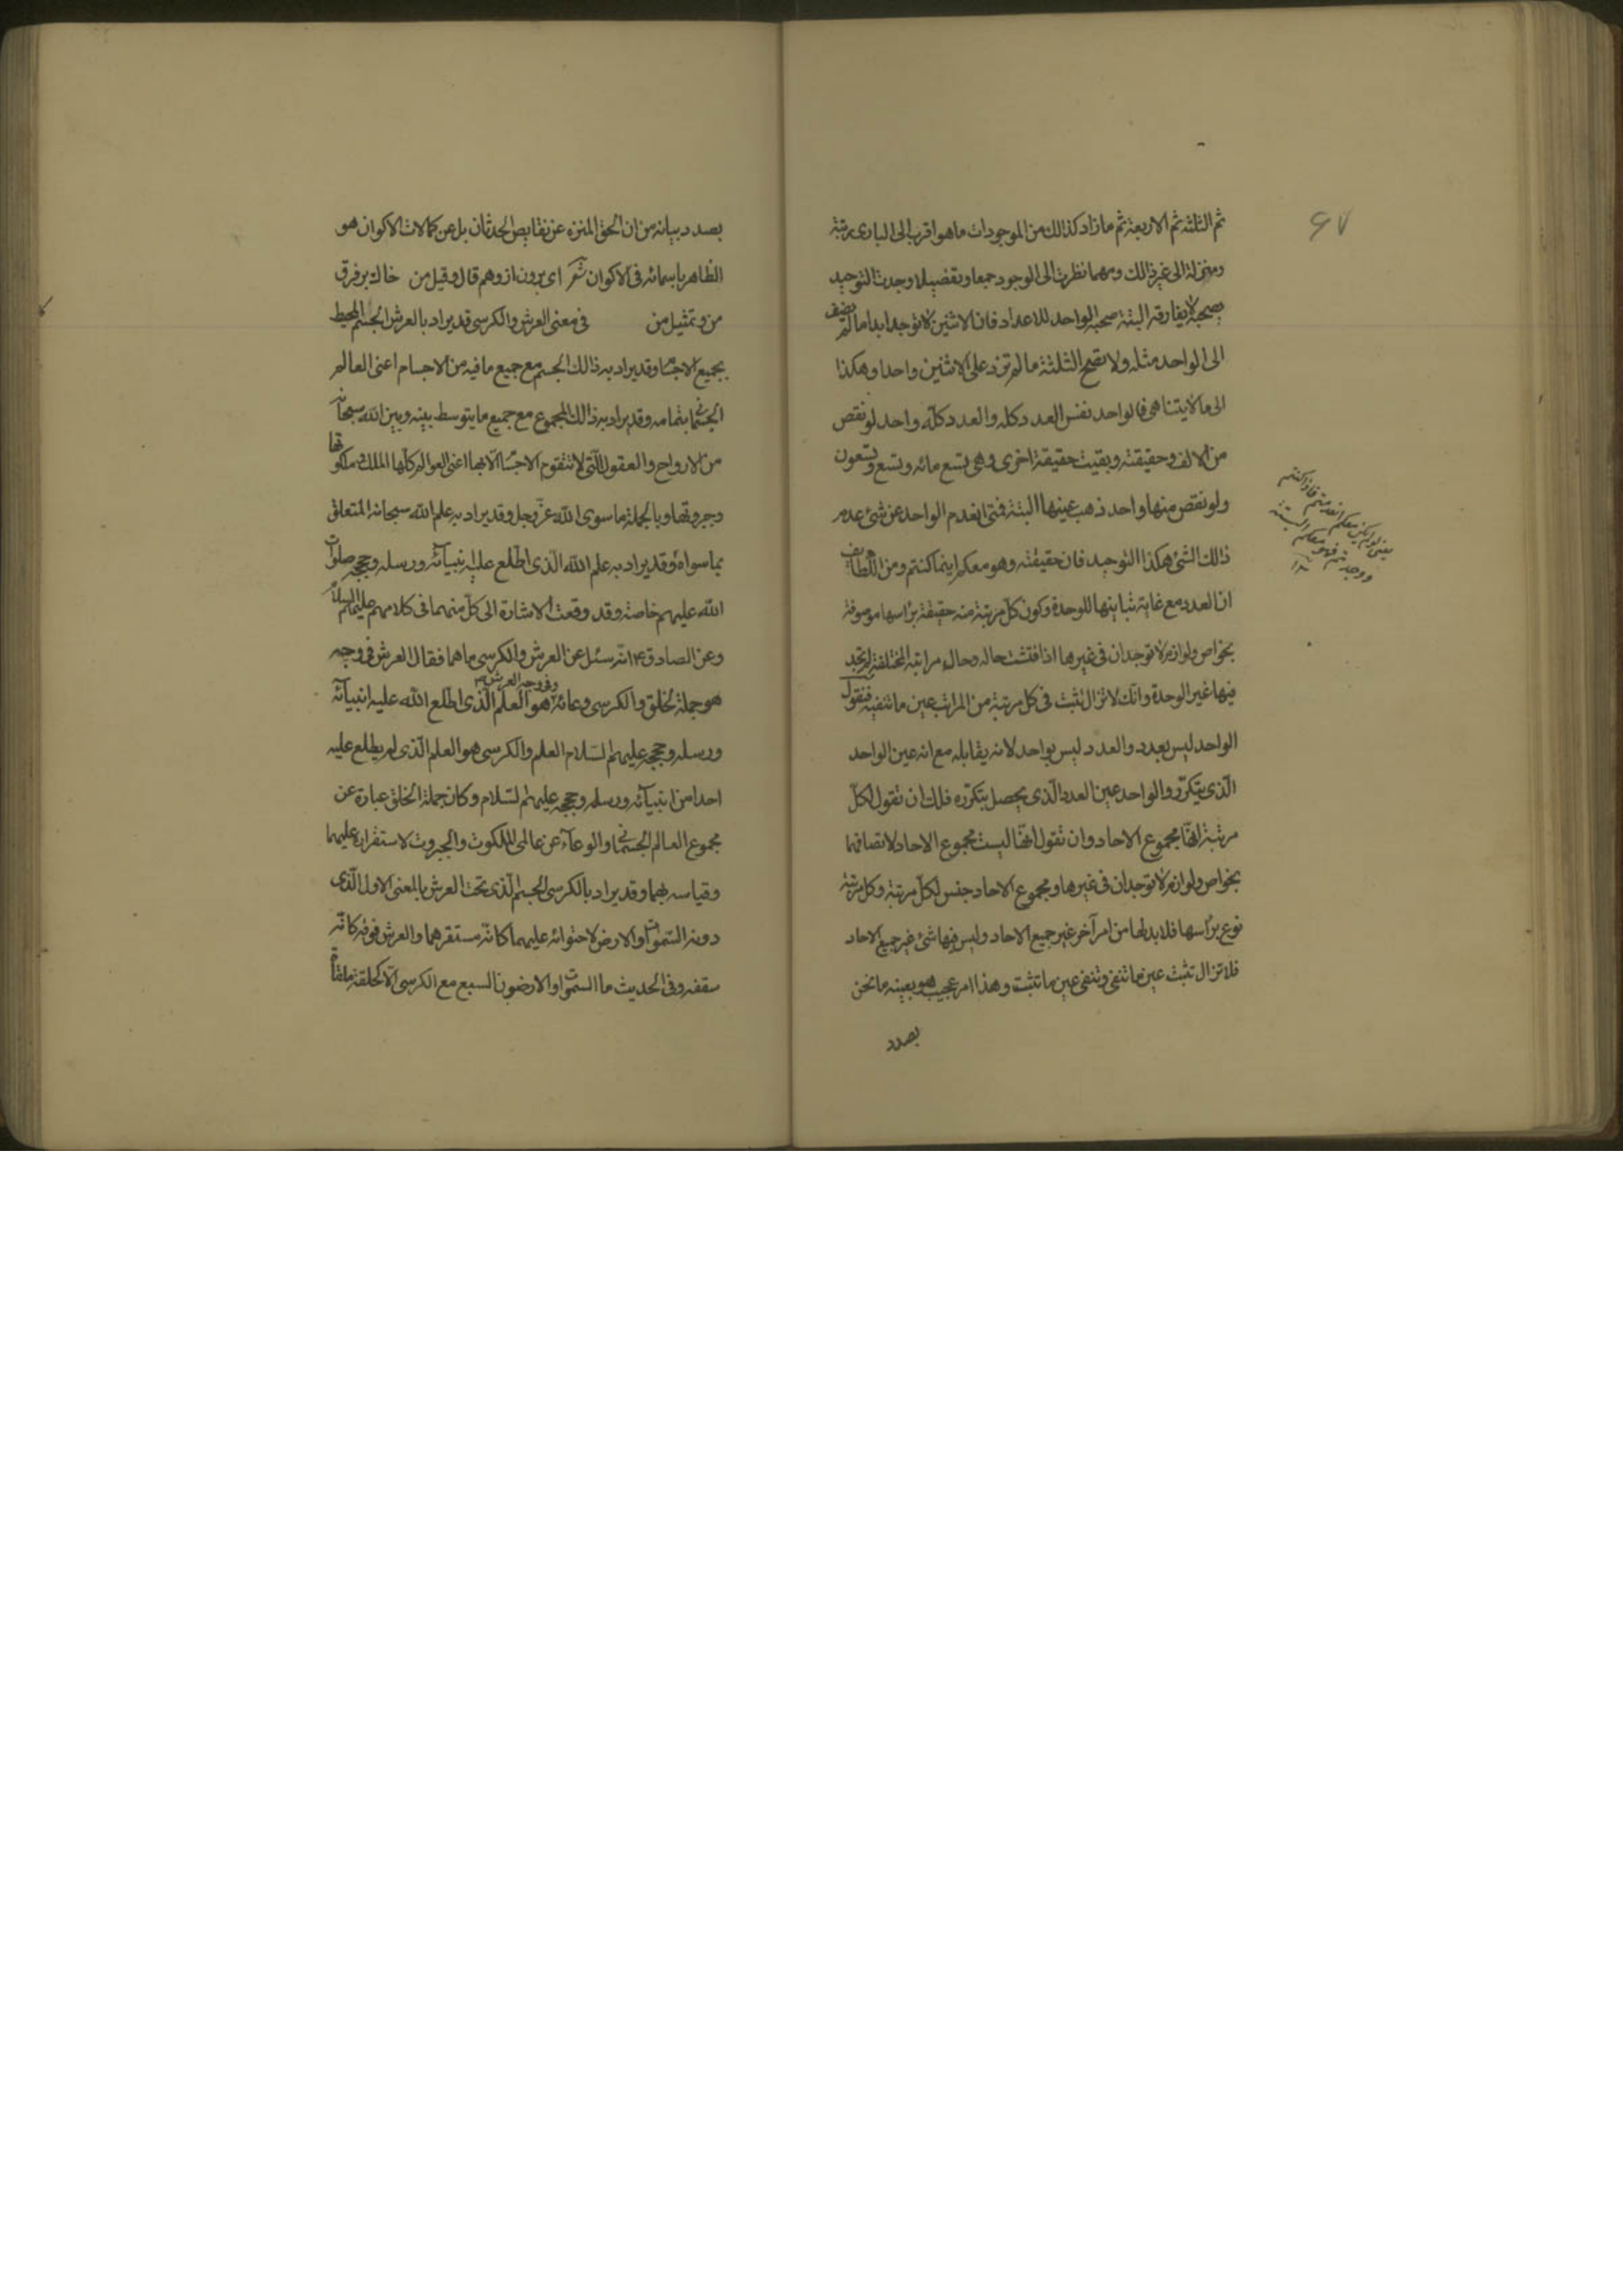 ۶۷
ثم الثلثة ثم الاربعة ثم ما زاد كذالك من الموجودات ما هو اقرب الى البارى رتبة
ومنزلة الى غير ذالك ومهما نظرت الى الوجود جمعا وتفضيلا وجدت التوحيد
يصحبه لا يفارقه البتة صحبة الواحد للاعداد فان الاثنين لا توجد ابدا ما لم يضف
الى الواحد مثله ولا تصح الثلثة ما لم تزد على الاثنين واحدا وهكذا
الى ما لا يتناهى فالواحد نفس العدد كله والعدد كلّه واحد لو نقص
من الالف وحقيقته وبقيت حقيقة اخرى وهى تسع مائه وتسع وتسعون
ولو نقص منها واحد ذهب عينها البتة فمتى انعدم الواحد عن شئ عدم
ذالك الشئ هكذا التوحيد فان حقيقته وهو معكم اينما كنتم ومن اللطايف
ان العدد مع غاية تباينها للوحدة وكون كل مرتبة منه حقيقة برأسها موصوفة
بخواص ولوازم لا توجدان فى غيرها اذا فتشت حاله وحال مراتبه المختلفة لم تجد
فيها غير الوحدة وانّك لا تزال تثبت فى كل مرتبة من المراتب عين ما تنفيه فتقول
الواحد ليس بعدد والعدد ليس بواحد لانه يقابله مع انه عين الواحد
الّذى يتكرّر والواحد عين العدد الّذى يحصل بتكرّره فلك ان تقول لكلّ
مرتبة انّها مجموع الاحاد وان تقول انّها ليست مجموع الاحاد لاتصافها
بخواص ولوازم لا توجدان فى غيرها ومجموع الاحاد جنس لكلّ مرتبة وكل مرتبة
نوع برأسها فلابد لها من امر آخر غير جميع الاحاد وليس فيها شئ غير جميع الاحاد
فلا تزال تثبت عين ما تنفى وتنفى عين ما تثبت وهذا امر عجيب هو بعينه ما نحن
بصدد
بصدد بيانه من ان الحق المنزه عن نقايص الحدثان بل عن كمالات الاكوان هو
الظاهر باسمائه فى الاكوان شعر اى برون از وهم قال وقيل من خاك بر فرق
من و تمثيل من فى معنى العرش والكرسى قد يراد بالعرش الجسم المحيط
بجميع الاجسام وقد يراد به ذالك الجسم مع جميع ما فيه من الاجسام اعنى العالم
الجسمانى بتمامه وقد يراد به ذالك المجموع مع جميع ما يتوسط بينه وبين الله سبحانه
من الارواح والعقول اللّتى لا تتقوم الاجسام الّا بها اعنى العوالم كلّها الملك وملكوتها
وجبروتها وبالجملة ما سوى الله عزّ وجل وقد يراد به علم الله سبحانه المتعلق
بما سواه وقد يراد به علم الله الّذى اطّلع عليه انبيآئه ورسله وحججه صلوات
الله عليهم خاصة وقد وقعت الاشارة الى كلّ منهما فى كلامهم عليهم السلام
وعن الصادق ع انّه سئل عن العرش والكرسى ما هما فقال العرش فى وجه
هو جملة الخلق والكرسى وعائه وفى وجه العرش هو العلم الّذى اطّلع الله عليه انبيآئه
ورسله وحججه عليهم السّلام العلم والكرسى هو العلم الّذى لم يطلع عليه
احدا من انبيآئه ورسله وحججه عليهم السّلام وكان جملة الخلق عبارة عن
مجموع العالم الجسمانى والوعاء عن عالمى الملكوت والجبروت لاستقراره عليهما
وقيامه بهما وقد يراد بالكرسى الجسم الّذى تحت العرش بالمعنى الاول الّذى
دونه السّموات والارض لاحتوائه عليهما كانّه مستقرهما والعرش فوقه كانّه
سقفه وفى الحديث ما السموات والارضون السبع مع الكرسى الّا كحلقة ملقاة